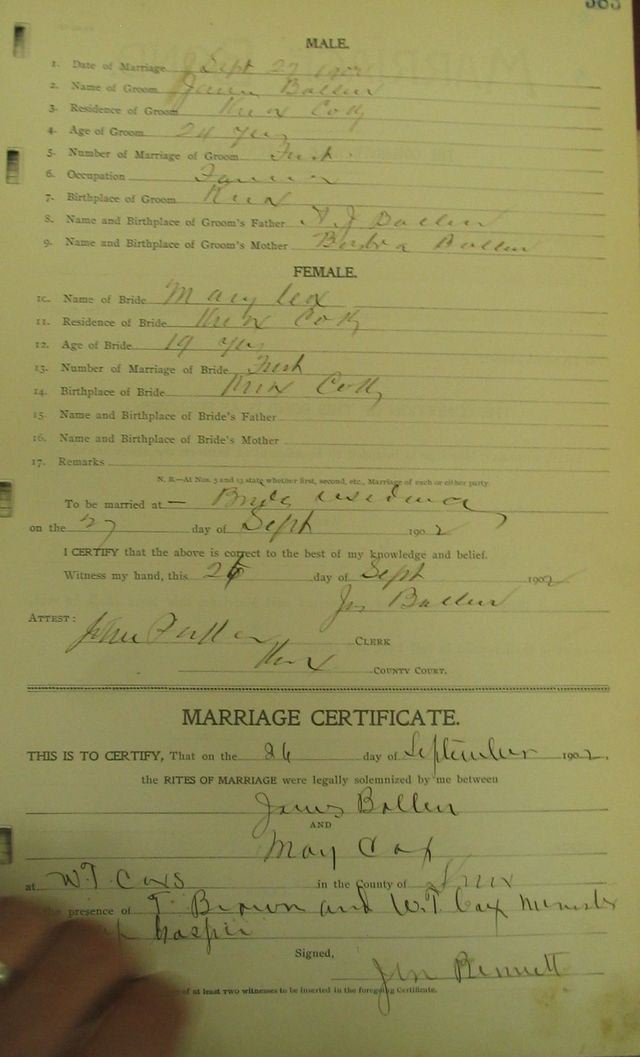 383
MALE.
1. Date of Marriage Sept 27 1902
2. Name of Groom James Bollen
3. Residence of Groom Knox Co Ky
4. Age of Groom 24 yrs
5. Number of Marriage of Groom First
6. Occupation Farmer
7. Birthplace of Groom Knox
8. Name and Birthplace of Groom's Father Bollen
9. Name and Birthplace of Groom's Mother Bollen
FEMALE.
10. Name of Bride Mary Cox
11. Residence of Bride Knox Co Ky
12. Age of Bride 19 yrs
13. Number of Marriage of Bride First
14. Birthplace of Bride Knox Co Ky
15. Name and Birthplace of Bride's Father
16. Name and Birthplace of Bride's Mother
17. Remarks
N. B.—At Nos. 5 and 13 state whether first, second, etc., Marriage of each or either party.
To be married at — Brides residence
on the 27 day of Sept 1902
I CERTIFY that the above is correct to the best of my knowledge and belief.
Witness my hand, this 26 day of Sept 1902
Jas Bollen
ATTEST:
John CLERK
Knox COUNTY COURT.
MARRIAGE CERTIFICATE.
THIS IS TO CERTIFY, That on the 26 day of September 1902,
the RITES OF MARRIAGE were legally solemnized by me between
James Bollen
AND
May Cox
at W.T. Coxs in the County of Knox
the presence of T. Brown and W.T. Cox Minister
Signed,
Bennett
of at least TWO witnesses to be inserted in the foregoing Certificate.